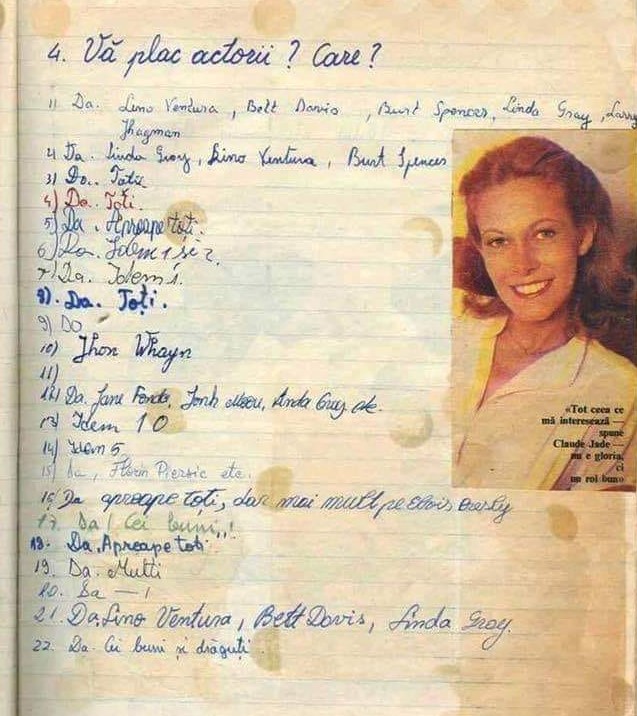 4. Vă plac actorii? Care?
1) Da. Lino Ventura, Bett Davis, Burt Spencer, Linda Gray, Larry
Jhagman
2) Da. Linda Gray, Lino Ventura, Burt Spencer
3) Da. Toți.
4) Da. Toți.
5) Da, Aproape toți.
6) Da. Idem 1 și 2.
7) Da. Idem 1.
8). Da. Toți.
9) Da
10) Jhon Whayn
11)
12) Da. Jane Fonda, Linda Gray etc.
13) Idem 10
14) Idem 5
15) Da, Florin Piersic etc.
16) Da aproape toți, dar mai mult pe Elvis Presly
17. Da! Cei buni,,!
18. Da. Aproape toți
19. Da. Mulți
20. Da — 1
21. Da Lino Ventura, Bett Davis, Linda Gray.
22. Da. Cei buni și drăguți.
«Tot ceea ce
mă interesează —
spune
Claude Jade —
nu e gloria,
ci
un rol bun»